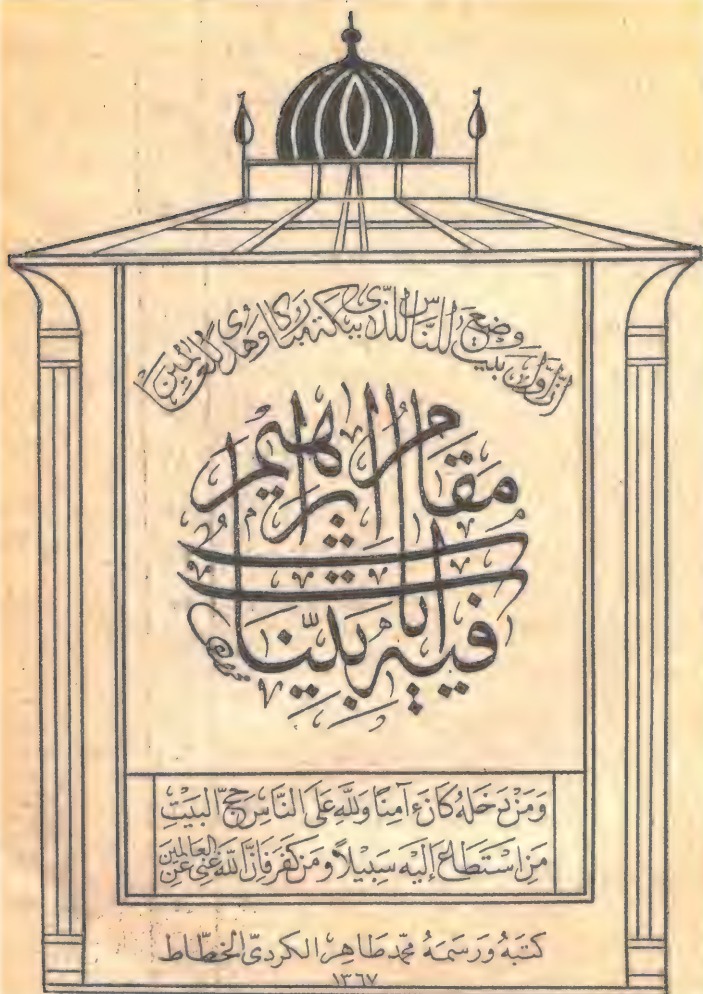 إن أول بيت وضع للناس للذي ببكة مباركا وهدى للعالمين
فيه آيات بينات
مقام إبراهيم
وَمَنْ دَخَلَهُ كَانَ آمِنًا وَلِلَّهِ عَلَى النَّاسِ حِجُّ الْبَيْتِ
مَنِ اسْتَطَاعَ إِلَيْهِ سَبِيلًا وَمَنْ كَفَرَ فَإِنَّ اللَّهَ غَنِيٌّ عَنِ الْعَالَمِينَ
كتبهُ ورسمهُ محمد طاهر الكردي الخطاط
١٣٦٧